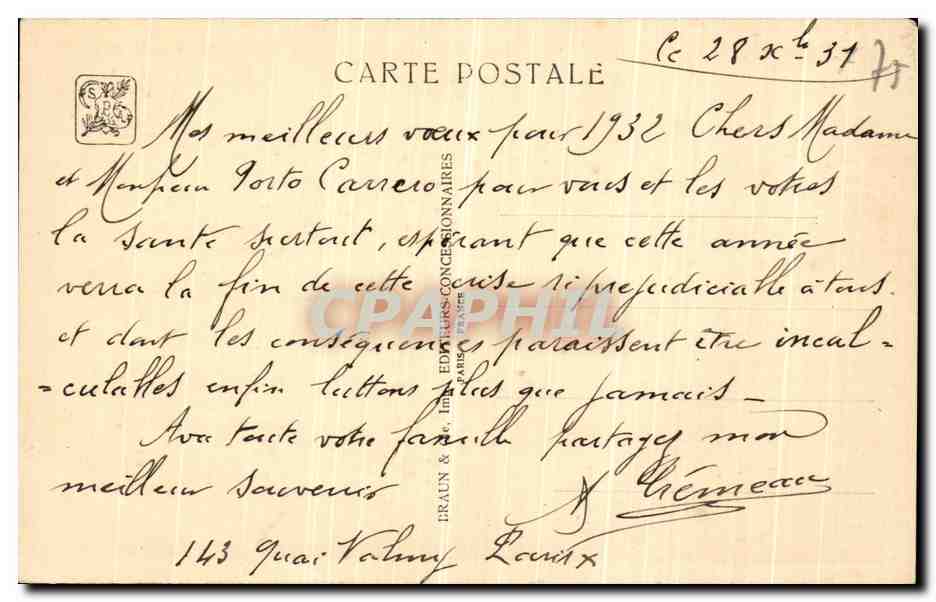 Ce 28 Xbre 31
75
CARTE POSTALE
Mes meilleurs vœux pour 1932 Chers Madame
et Monsieur Porto Carrero pour vous et les votres
la santé surtout, espérant que cette année
verra la fin de cette crise si préjudiciable à tous.
et dont les conséquences paraissent être incal=
=culables enfin luttons plus que jamais_
Avec toute votre famille partagez mon
meilleur souvenir
Trémeau
143 Quai Valmy Paris X
BRAUN & Cie, Imp. EDITEURS-CONCESSIONNAIRES
PARIS FRANCE
CPAPHIL